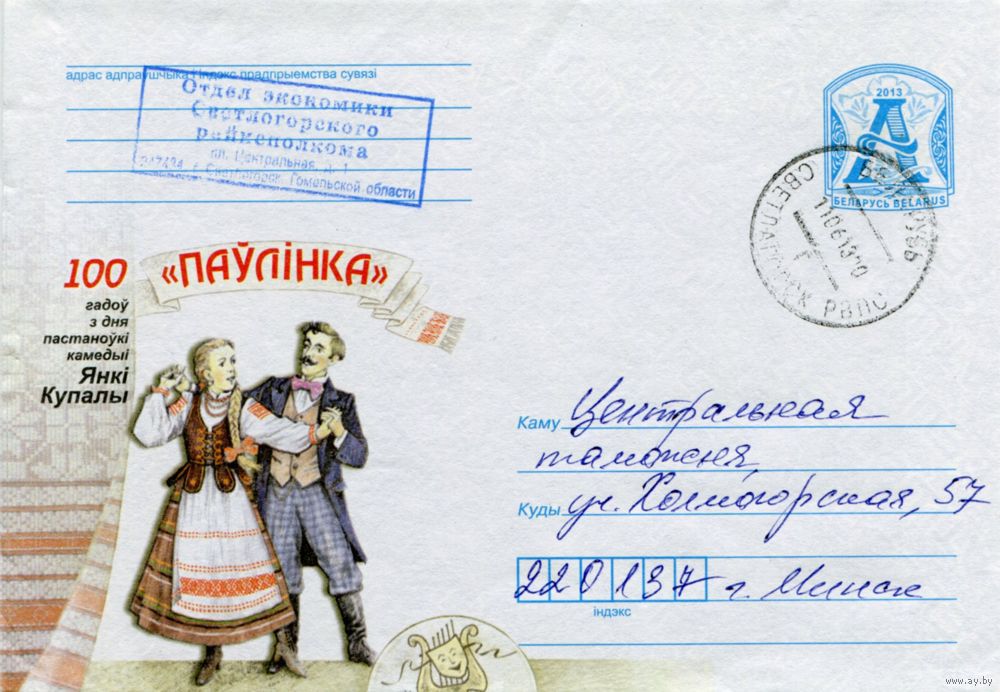 адрас адпраўшчыка і індэкс прадпрыемства сувязі
Отдел экономики
Светлогорского
райисполкома
пл. Центральная, д. 1
247434, г. Светлогорск, Гомельской области
2013
А
БЕЛАРУСЬ BELARUS
БЕЛАРУСЬ
110613
СВЕТЛАГОРСК РВПС
100
«ПАЎЛІНКА»
гадоў
з дня
пастаноўкі
камедыі
Янкі
Купалы
Каму Центральная
таможня,
Куды ул. Холмогорская, 57
220137 г. Минск
індэкс
www.ay.by